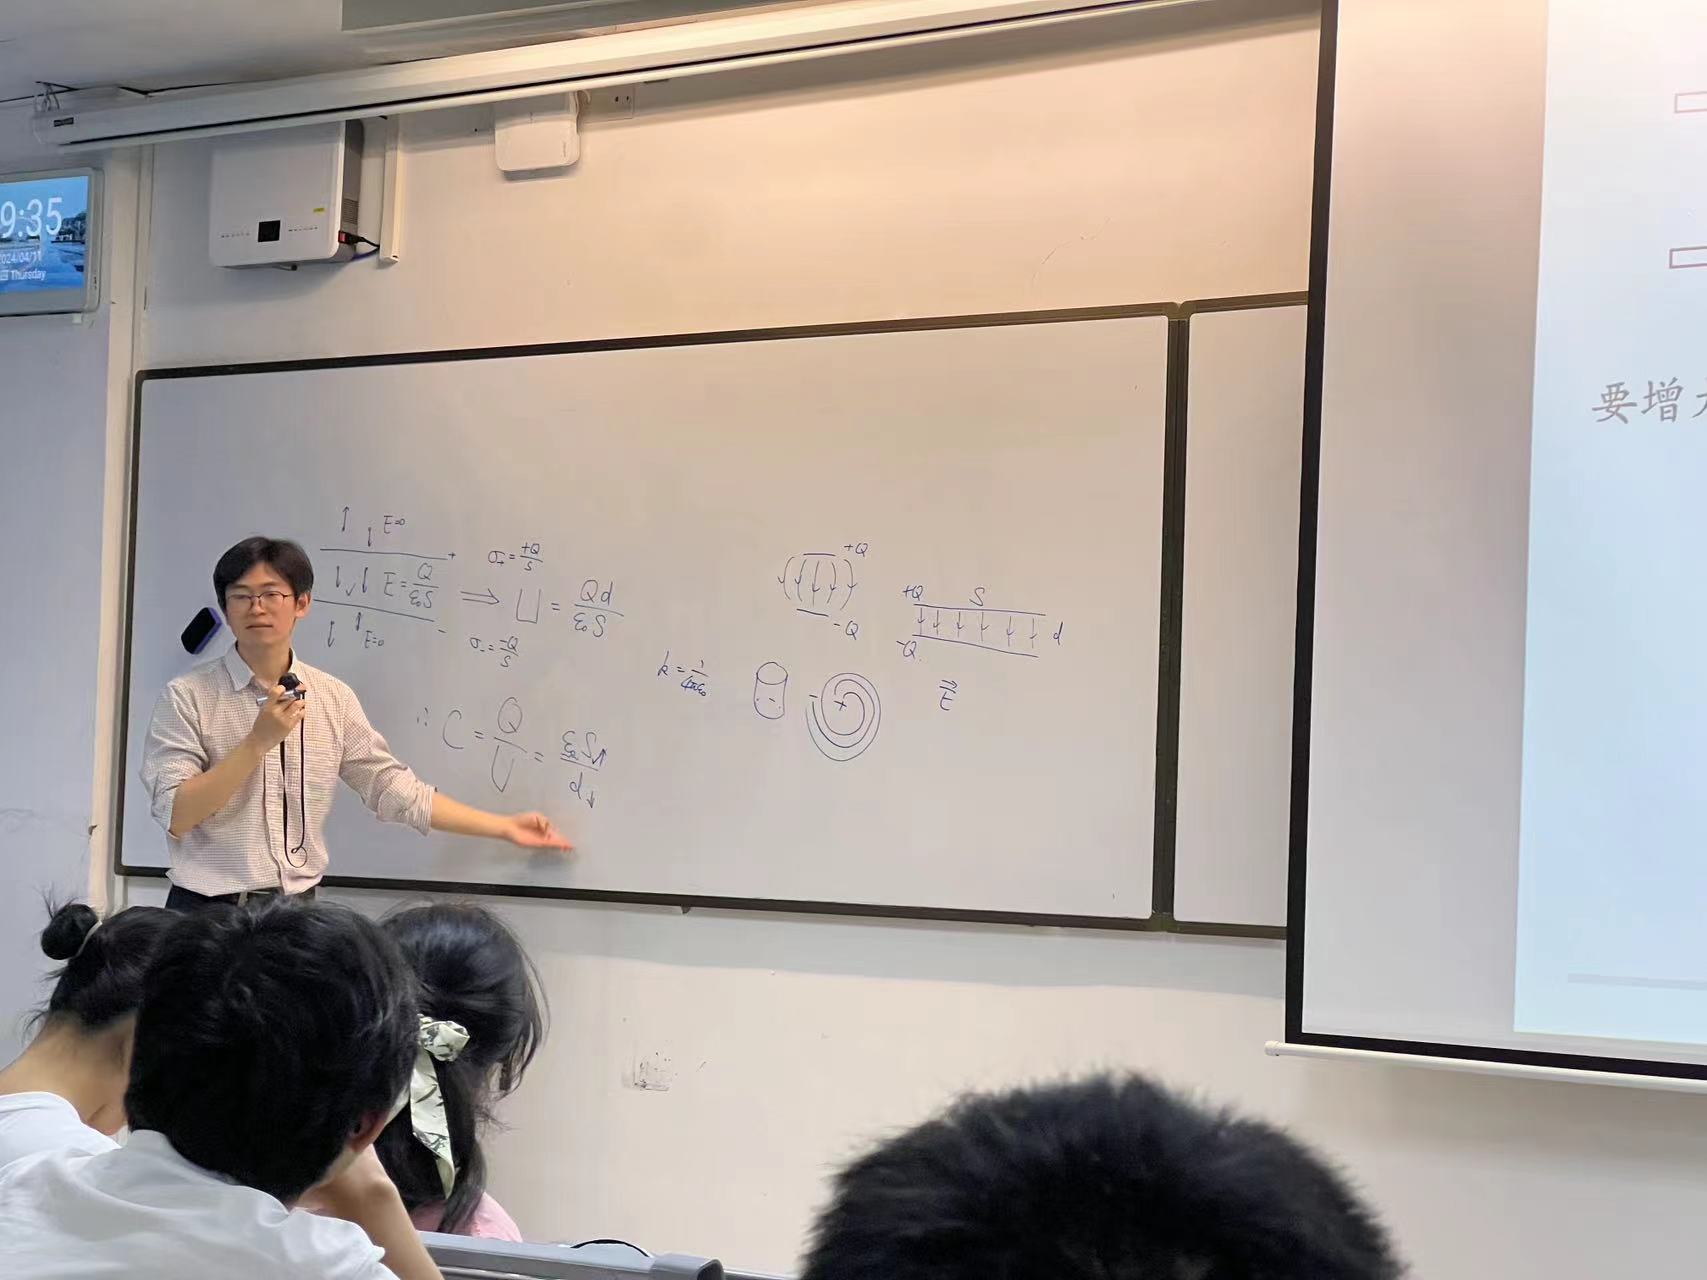 9:35
2024/04/11
Thursday
E=0
+
E = Q/ε₀S
-
E=0
σ₊ = +Q/S
⟹ U = Qd/ε₀S
σ₋ = -Q/S
∴ C = Q/U = ε₀S↑/d↓
k = 1/4πε₀
+Q
-Q
- +
-
+Q S
d
-Q
E⃗
要增